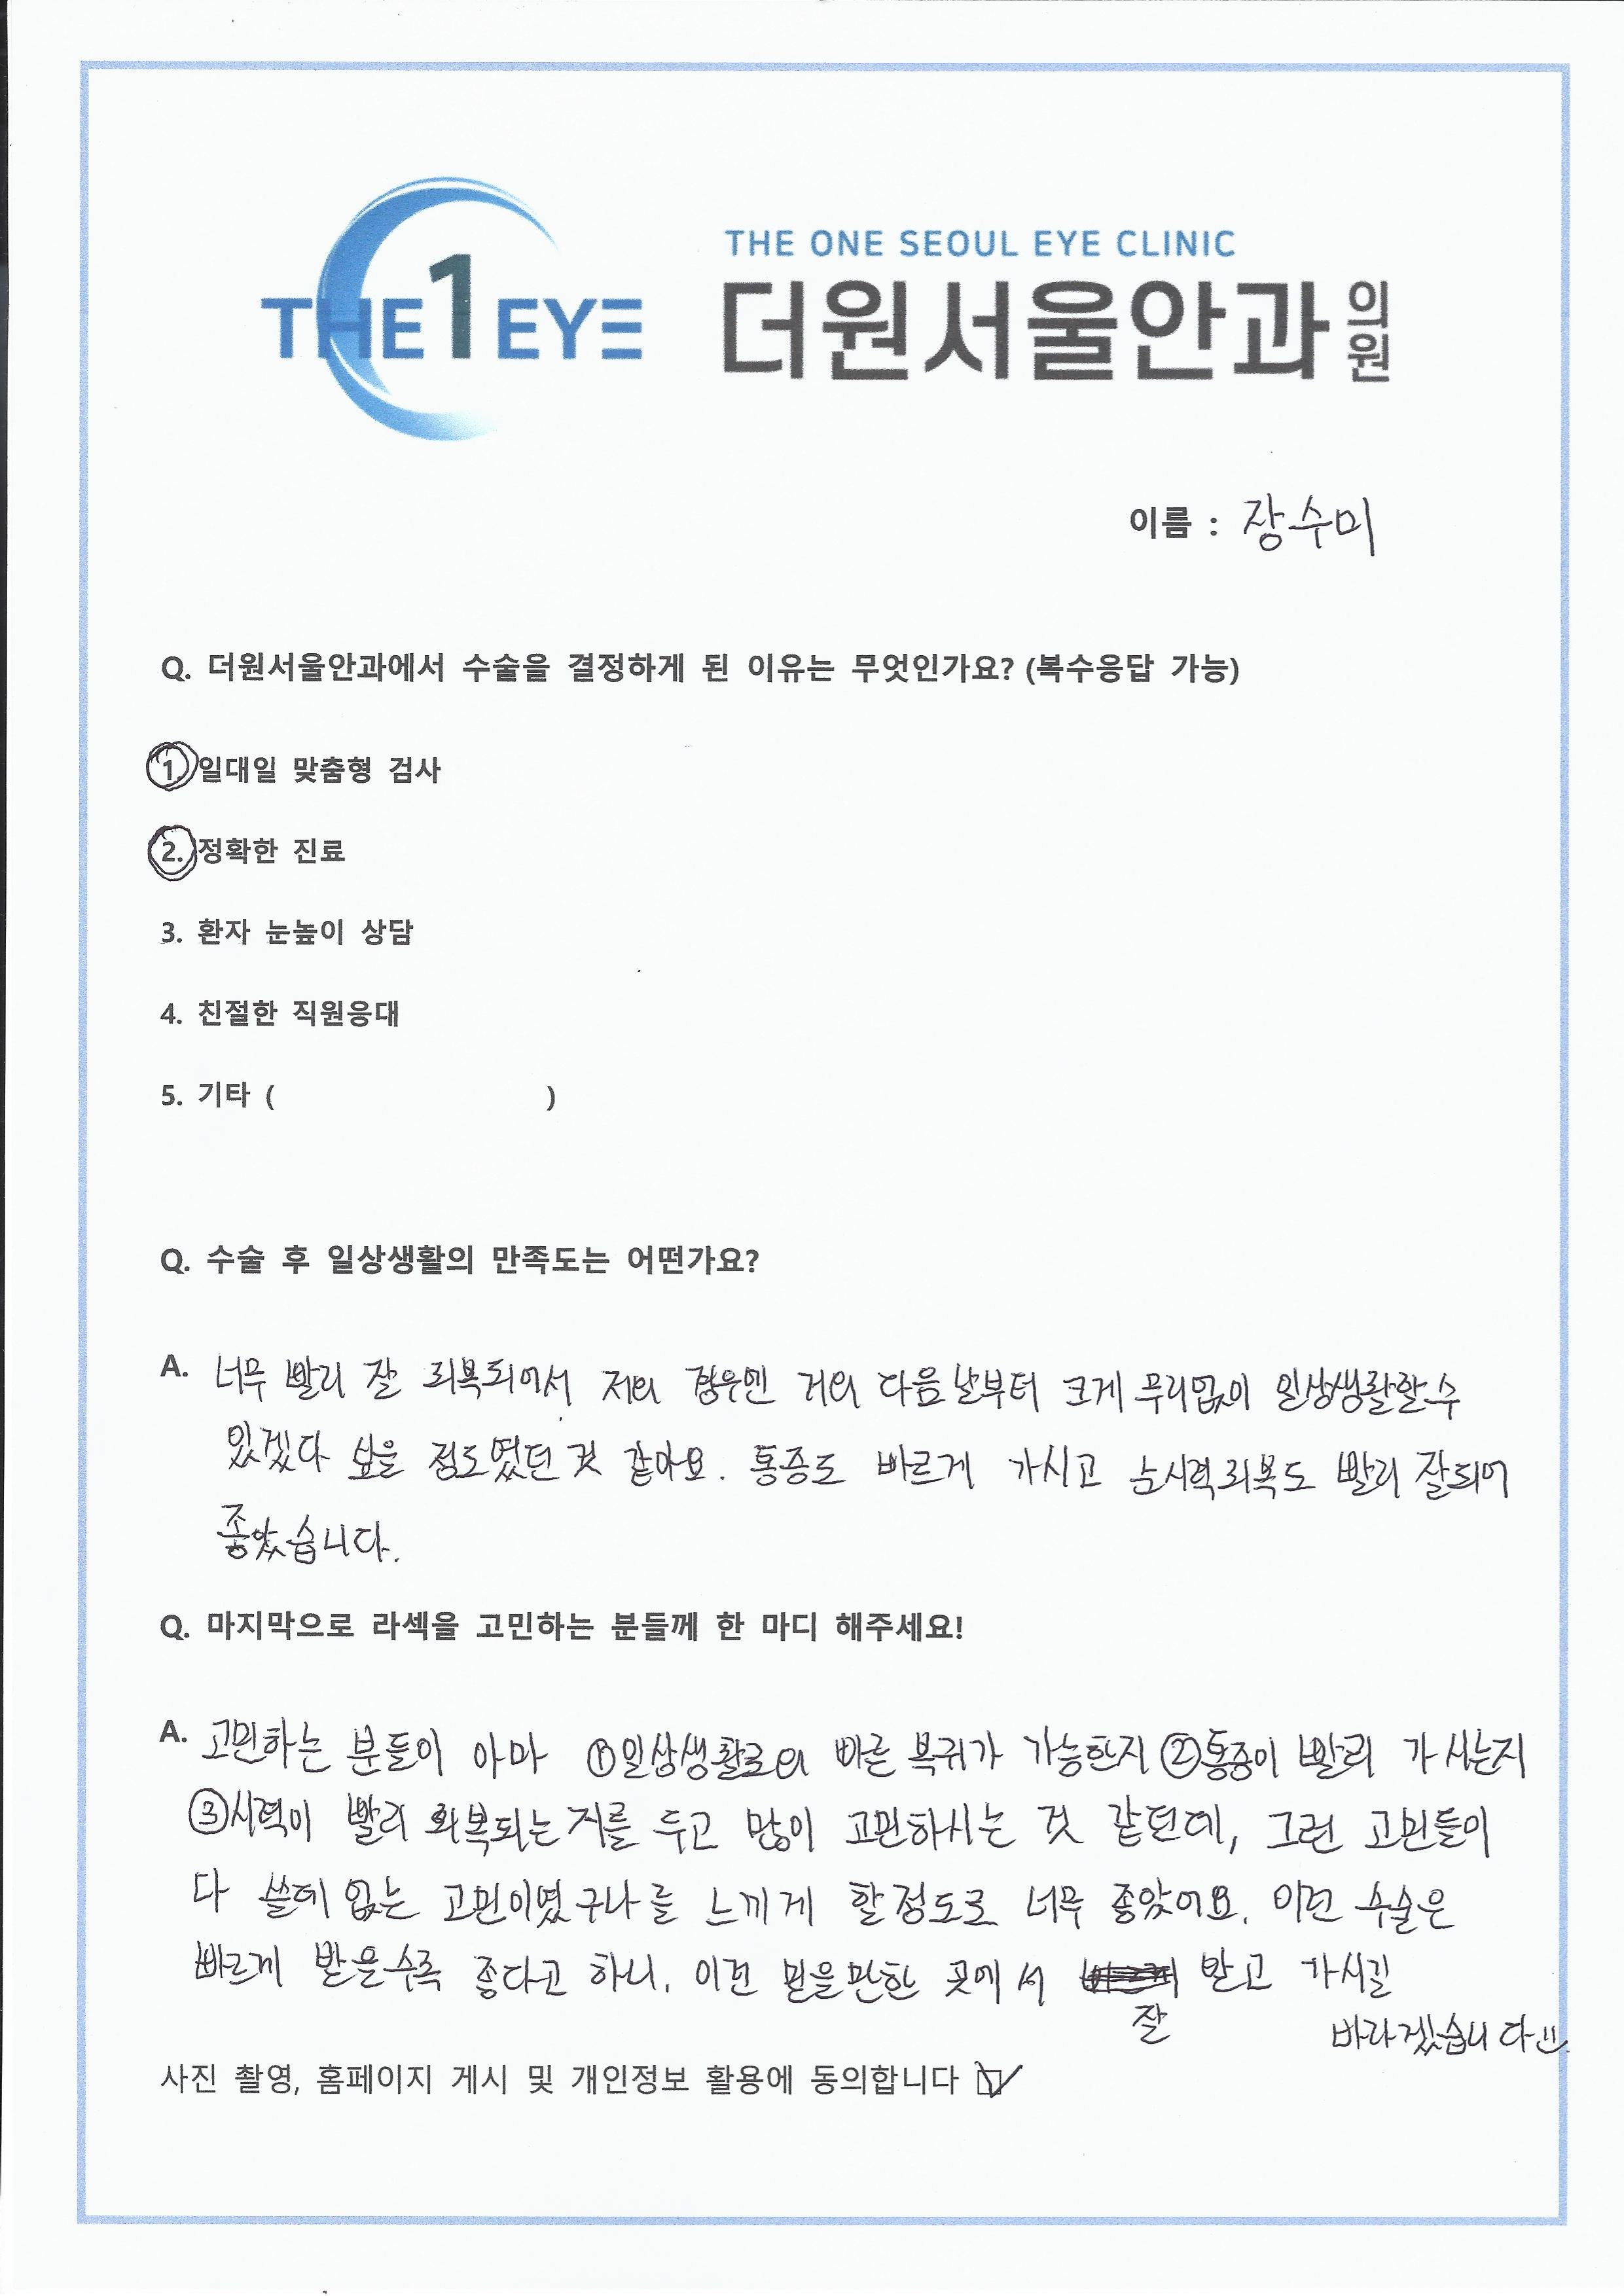 THE 1 EYE
THE ONE SEOUL EYE CLINIC
더원서울안과의원
이름 : 장수미
Q. 더원서울안과에서 수술을 결정하게 된 이유는 무엇인가요? (복수응답 가능)
1. 일대일 맞춤형 검사
2. 정확한 진료
3. 환자 눈높이 상담
4. 친절한 직원응대
5. 기타 ( )
Q. 수술 후 일상생활의 만족도는 어떤가요?
A. 너무 빨리 잘 회복되어서 저의 경우엔 거의 다음날부터 크게 무리없이 일상생활할수
있겠다 싶을 정도였던 것 같아요. 통증도 빠르게 가시고 눈시력회복도 빨리 잘되어
좋았습니다.
Q. 마지막으로 라섹을 고민하는 분들께 한 마디 해주세요!
A. 고민하는 분들이 아마 ①일상생활로의 빠른 복귀가 가능한지 ②통증이 빨리 가시는지
③시력이 빨리 회복되는지를 두고 많이 고민하시는 것 같던데, 그런 고민들이
다 쓸데없는 고민이였구나를 느끼게 할정도로 너무 좋았어요. 이런 수술은
빠르게 받을수록 좋다고 하니, 이런 믿을만한 곳에서 받고 가시길
잘 바라겠습니다
사진 촬영, 홈페이지 게시 및 개인정보 활용에 동의합니다 ☑